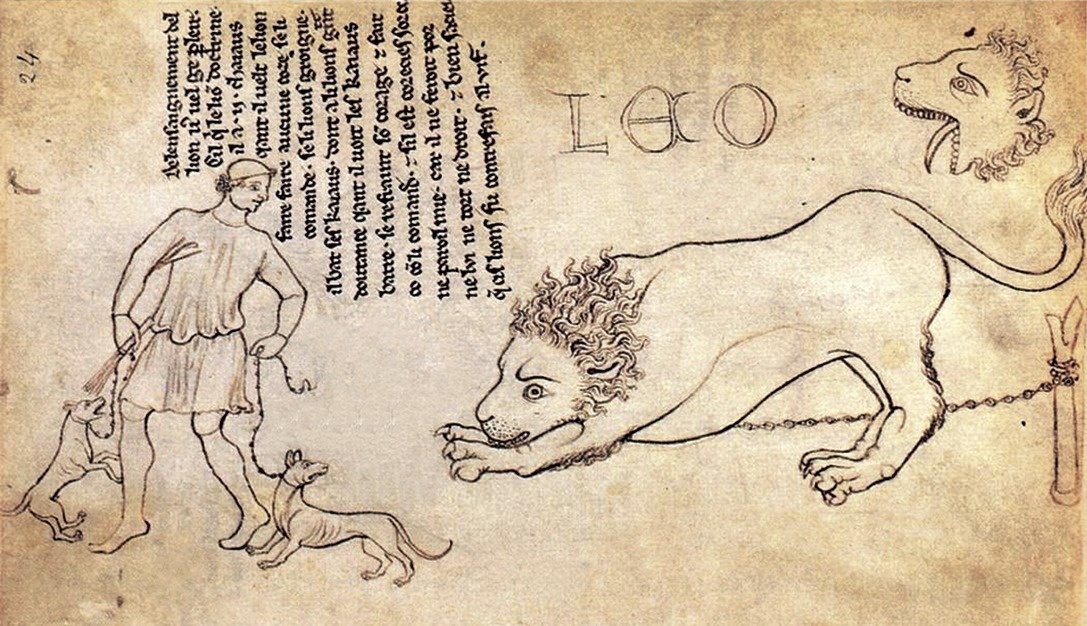 24
LEO
Delensaignement del
lion uꝰ uel ge pleir.
Cil q̕ le liō doctrine
il a .ij. chaiaus
qant il uelt lelion
faire faire aucune coze. se li
comande. se li lions groigne.
il bat ses kaiaus. dont a li lions gͬt
doutance qant il uoit les kaiaus
batre. se refraint sō corage ⁊ fait
co cō li comand̕. ⁊ sil est corecies sor co
ne paroil mie. car il ne feroit por
nelui ne tort ne droit. ⁊ bien sacies
q̄ cis lions fu contrefais al vif.